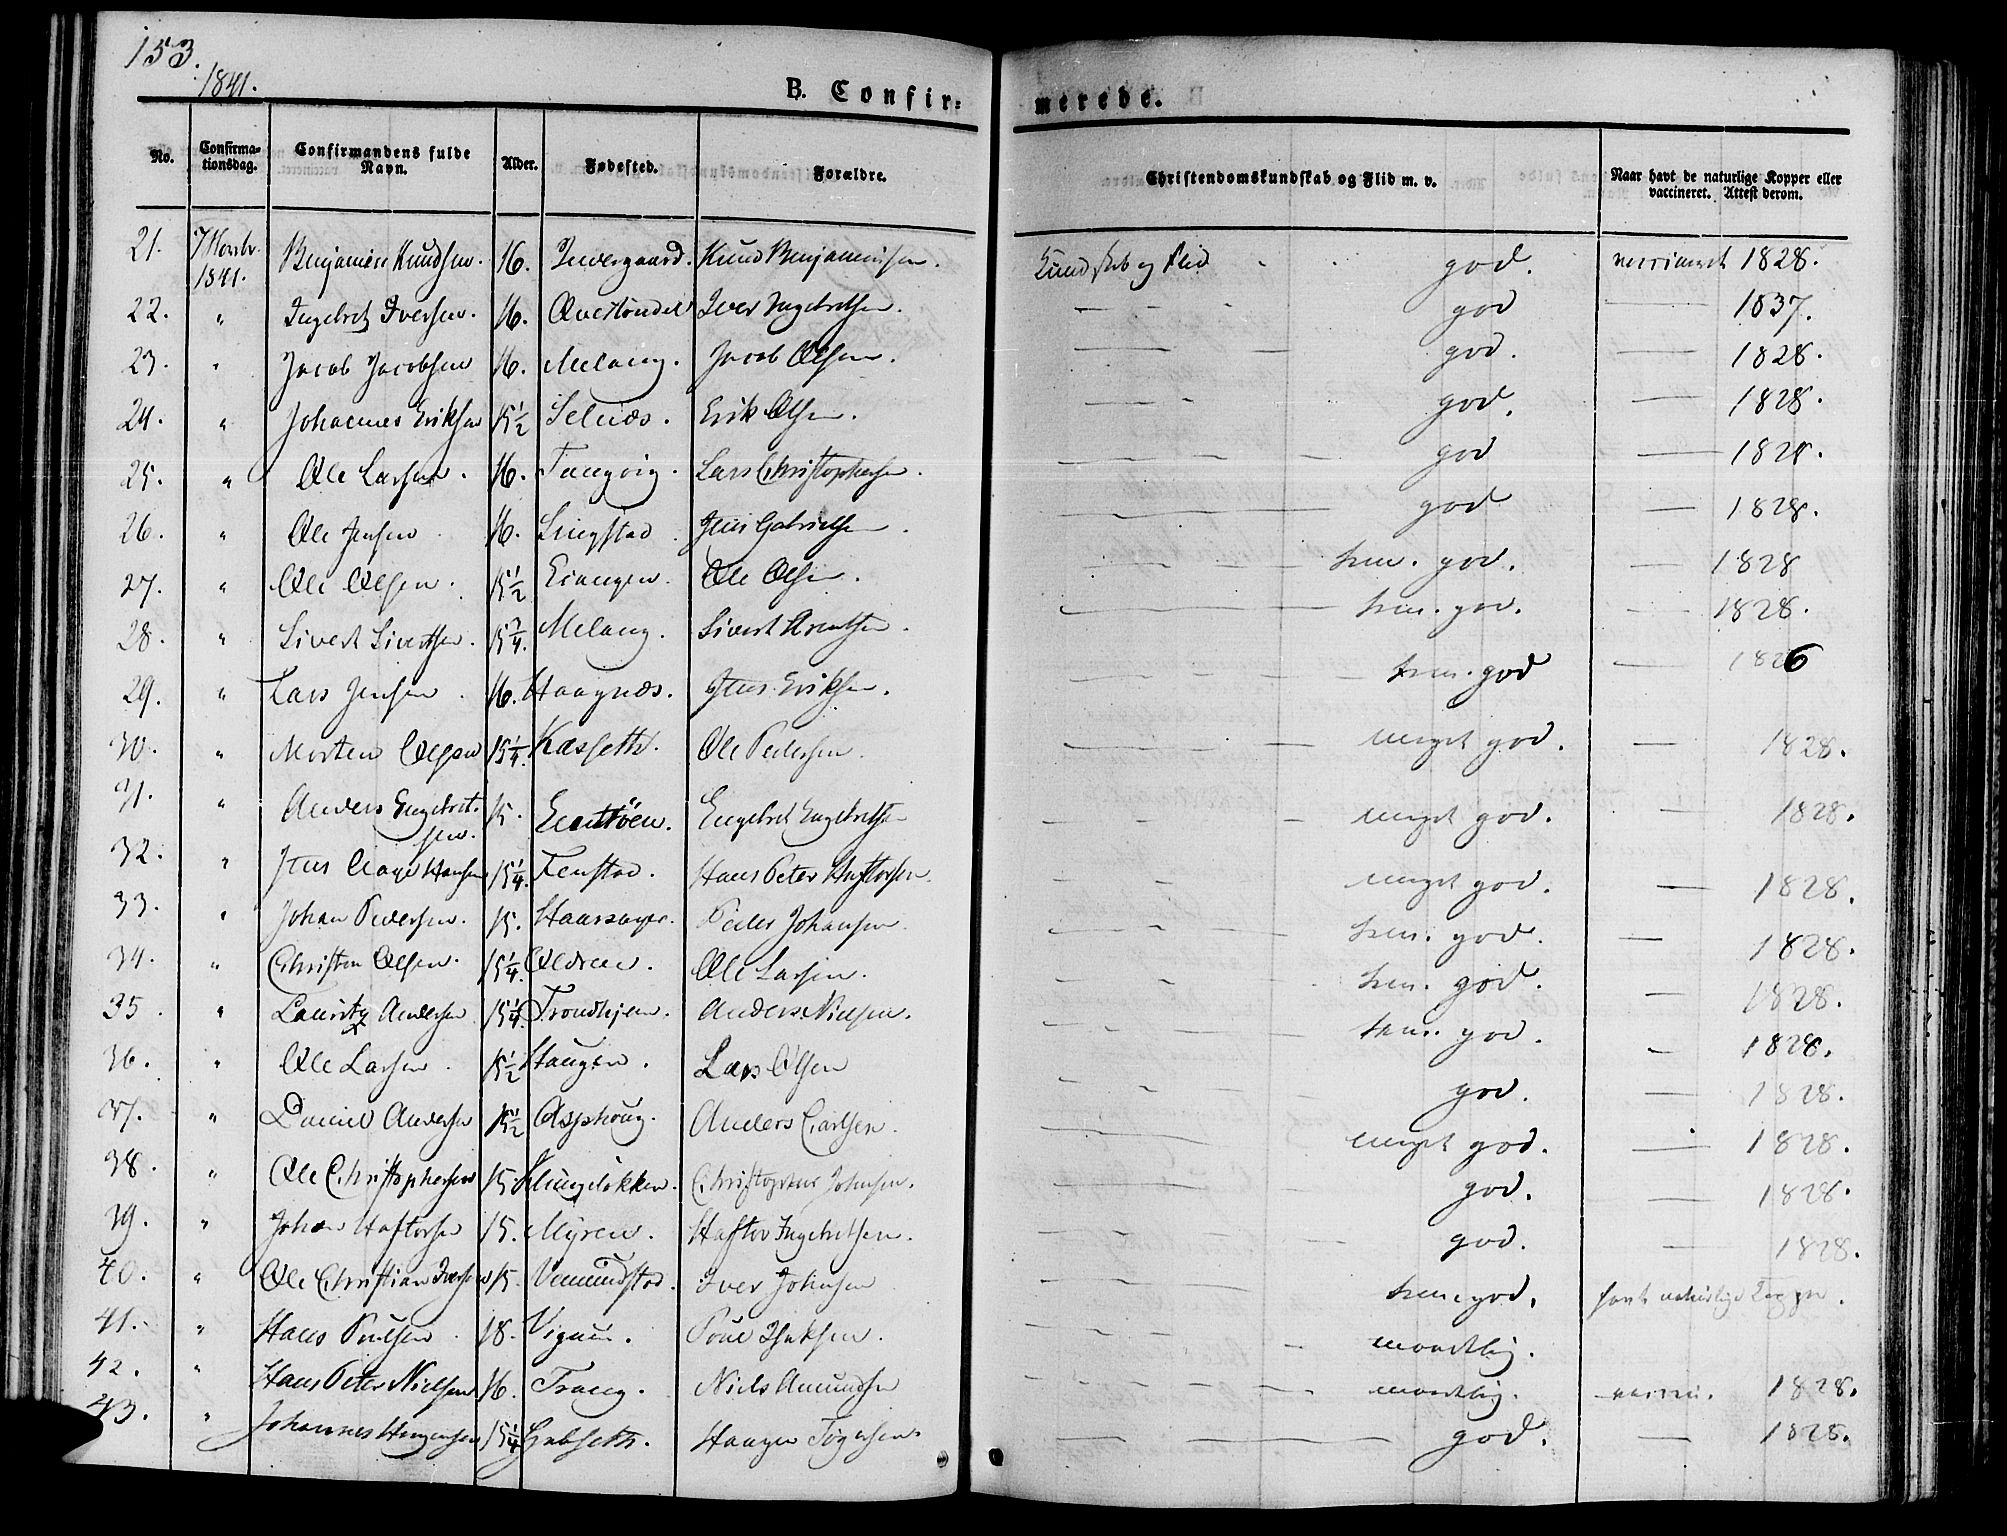 153.
1841.
B. Confir-
merede.
No. Confirma-tionsdag. Confirmandens fulde Navn. Alder. Fødested. Forældre. Christendomskundskab og Flid m. v. Naar havt de naturlige Kopper eller vaccineret. Attest derom.
21. 1841. Benjamin Knudsen. 16. Knud Benjaminsen. Kundskab og Flid god. vaccineret 1828.
22. " Ingebret Iversen. 16. Iver Ingebretsen. god 1837.
23. " Jacob Jacobsen 16. Melang. Jacob Olsen. god. 1828.
24. " Johannes Eriksen 15 1/2 Selnæs. Erik Olsen. god. 1828.
25. " Ole Larsen. 16. Tangvig. Lars Christophersen. god 1828.
26. " Ole Jensen 16. Lingstad. Jens Gabrielsen. god 1828.
27. " Ole Olsen. 15 1/2 Ole Olsen. tem. god. 1828
28. " Sivert Sivertsen. 15 3/4. Melang. Sivert Arentsen. tem. god. 1828.
29. " Lars Jensen. 16. Haagnæs. Jens Eriksen. tem. god 1826
30. " Morten Olsen 15 1/4. Ole Pedersen meget god. 1828.
31. " Anders Engebretsen. 15. Engebret Engebretsen meget god. 1828.
32. " Jens Aage Hansen 15 1/4. Fenstad. Hans Peter Haftorsen. meget god. 1828.
33. " Johan Pedersen. 15. Haarsager. Peder Johansen. tem. god. 1828.
34. " Christen Olsen. 15 1/4. Ole Larsen. tem. god. 1828.
35. " Lauritz Andersen 15 1/4. Trondhjem. Anders Nielsen. tem. god. 1828.
36. " Ole Larsen. 15 1/2 Haugen. Lars Olsen god. 1828.
37. " Daniel Andersen 15 1/2 Asphoug. Anders Carlsen. meget god. 1828.
38. " Ole Christophersen 15. Klungeløkken. Christopher Johnsen. god. 1828.
39. " Johan Haftorsen 15. Myren. Haftor Ingebretsen. god. 1828.
40. " Ole Christian Iversen 15. Vemundstad. Iver Johnsen tem. god. havt naturlige Kopper.
41. " Hans Poulsen. 18. Vignæs. Poul Isaksen. maadelig.
42. " Hans Peter Nielsen 16. Trang. Niels Amundsen maadelig. vaccin. 1828.
43. " Johannes Haagensen 15 1/4 Haagen god. 1828.